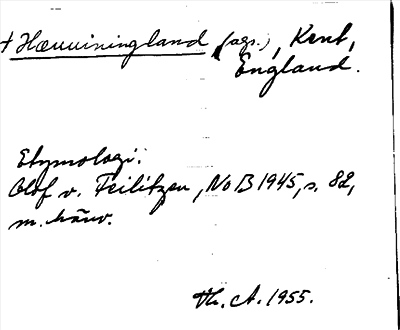 † Hæuuiningland (ags.), Kent,
England.
Etymologi:
Olof v. Feilitzen, NoB 1945, s. 82,
m. hänv.
Th. A. 1955.